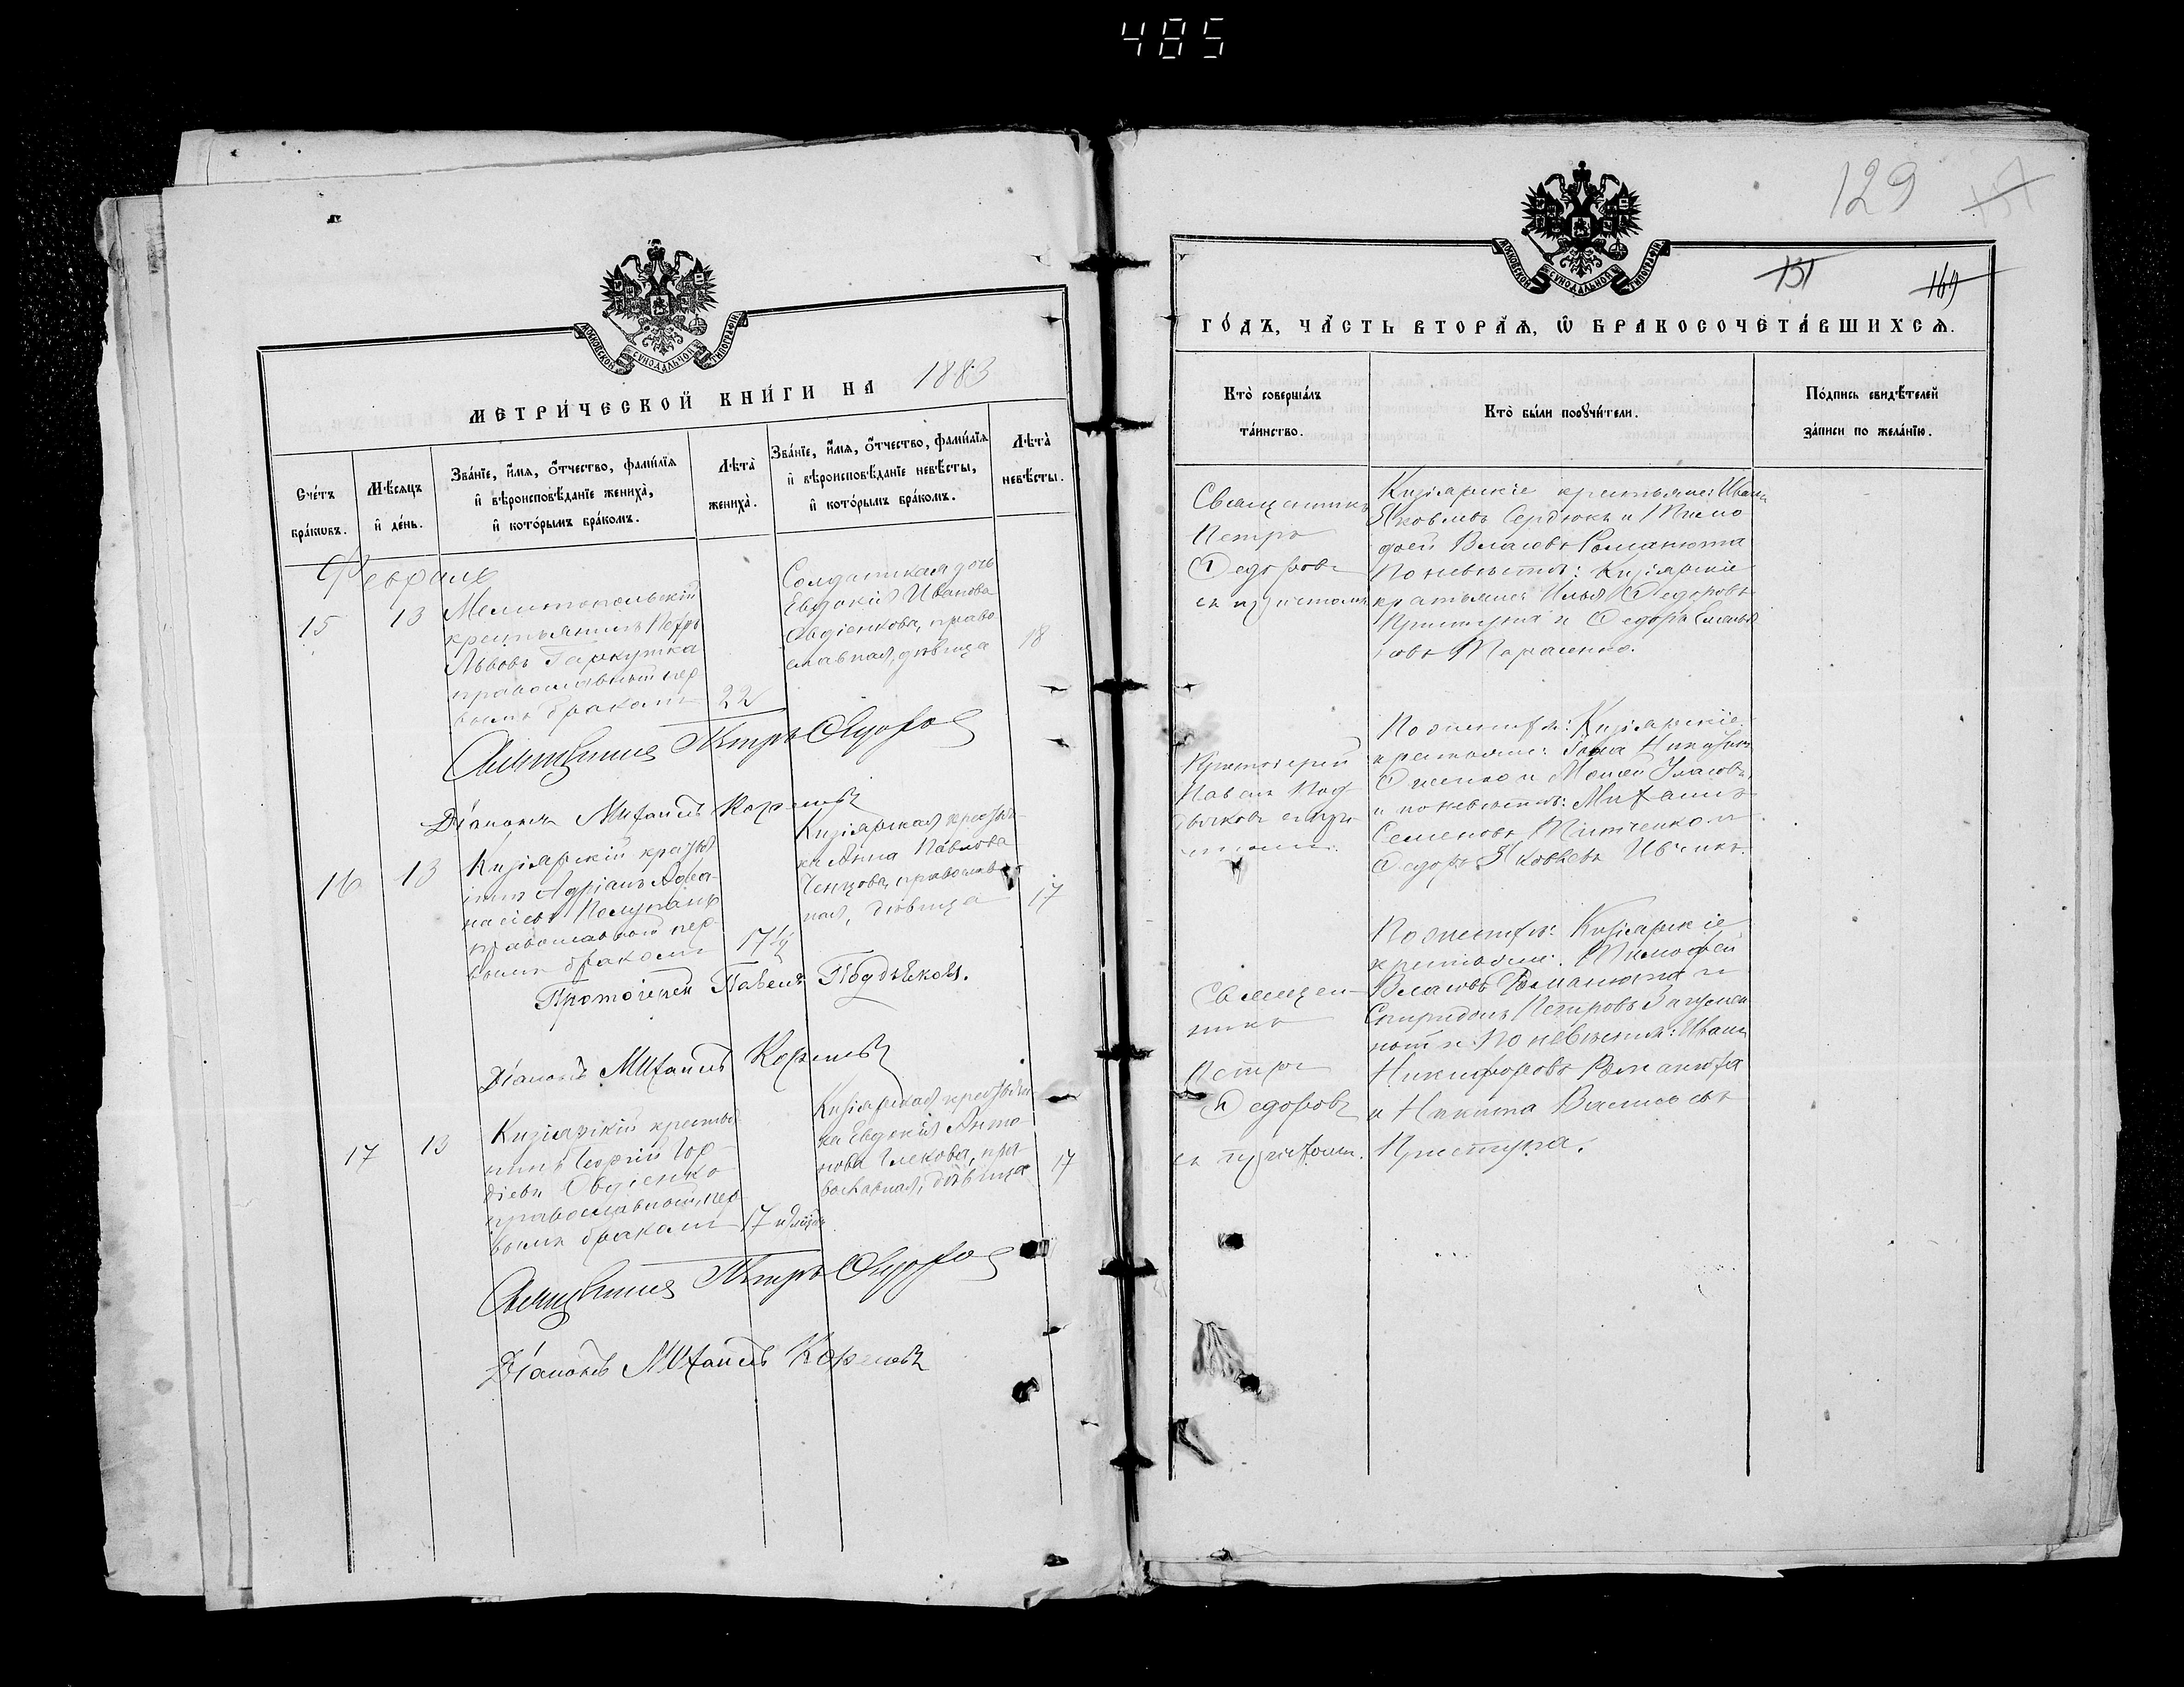 485
129
МОСКОВСКОЙ СѴНОДАЛЬНОЙ ТИПОГРАФІИ
МЕТРИ́ЧЕСКОЙ КНИ́ГИ НА 1883
Сче́тъ бра́кѡвъ.
Мѣ́сяцъ и҆ де́нь.
Зва́нїе, и҆́мя, ѻ҆́тчество, фами́лїя
и҆ вѣроисповѣ́данїе жениха̀,
и҆ кото́рымъ бра́комъ.
Лѣта̀ жениха̀.
Зва́нїе, и҆́мя, ѻ҆́тчество, фами́лїя
и҆ вѣроисповѣ́данїе невѣ́сты,
и҆ кото́рымъ бра́комъ.
Лѣта̀ невѣ́сты.
Февраль
15
13
Мелитопольскій
крестьянинъ Петръ
Львовъ Гаркушка
православный пер
вымъ бракомъ
22
Солдатская дочь
Евдокія Иванова
Авдіенкова, право
славная, дѣвица
18
Священникъ Петръ Ѳедоровъ
Діаконъ Михаилъ
16
13
Кизіярскій крестья
нинъ Адріанъ Аѳа-
насіевъ
православный пер-
вымъ бракомъ
17 ½
Кизіярская крестьян-
ка Анна Павлова
Ченцова, православ
ная, дѣвица
17
Протоіерей Павелъ Подъяковъ.
Діаконъ Михаилъ
17
13
Кизіярскій крестья
нинъ Георгій Гор-
діевъ Овдіенко
православный, пер
вымъ бракомъ
17
Кизіярская крестьян-
ка Евдокія Анто-
нова, пра-
вославная, дѣвица
17
Священникъ Петръ Ѳедоровъ
Діаконъ Михаилъ
МОСКОВСКОЙ СѴНОДАЛЬНОЙ ТИПОГРАФІИ
131
169
ГО́ДЪ, ЧА́СТЬ ВТОРА́Я, Ѡ҆ БРАКОСОЧЕТА́ВШИХСЯ.
Кто̀ соверша́лъ
та́инство.
Кто̀ бы́ли порꙋчи́тели.
По́дпись свидѣ́телей
за́писи по жела́нїю.
Священникъ
Петръ
Ѳедоровъ
съ причтомъ
Кизіярскіе крестьяне: Иванъ
Яковлевъ Сердюкъ и Тимо
фей Власовъ Романюта
По невѣстѣ: Кизіярскіе
крестьяне Илья Ѳедоровъ
Приступа и Ѳедоръ Емелья
новъ
Протоіерей
Павелъ Подъ
яковъ съ при
чтомъ.
По женихѣ: Кизіярскіе
крестьяне:
и Моисей Власовъ,
и по невѣстѣ: Михаилъ
Семеновъ и
Ѳедоръ Яковлевъ
Священ-
никъ
Петръ
Ѳедоровъ
съ причтомъ.
По женихѣ: Кизіярскіе
крестьяне: Тимофей
Власовъ Романюта и
Спиридонъ Петровъ Загумен
ный и По невѣстѣ: Иванъ
Никифоровъ Романюта
и Никита Васильевъ
Приступа.